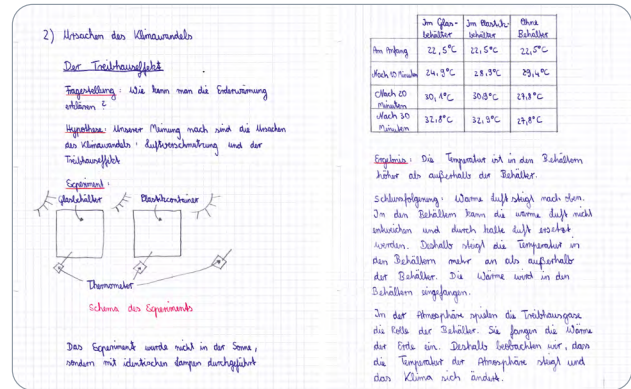 2) Ursachen des Klimawandels
Der Treibhauseffekt
Fragestellung : Wie kann man die Erderwärmung
erklären ?
Hypothese : Unserer Meinung nach sind die Ursachen
des Klimawandels : Luftverschmutzung und der
Treibhauseffekt
Experiment :
Glasbehälter Plastikcontainer
Thermometer
Schema des Experiments
Das Experiment wurde nicht in der Sonne,
sondern mit identischen Lampen durchgeführt
Im Glas- Im Plastik- Ohne
behälter behälter Behälter
Am Anfang 22,5°C 22,5°C 22,5°C
Nach 10 Minuten 24,9°C 28,9°C
Nach 20 30,1°C 30,9°C 27,8°C
Minuten
Nach 30 32,8°C 32,9°C 27,8°C
Minuten
Ergebnis : Die Temperatur ist in den Behältern
höher als außerhalb der Behälter.
Schlussfolgerung : Warme Luft steigt nach oben.
In den Behältern kann die warme Luft nicht
entweichen und durch kalte Luft ersetzt
werden. Deshalb steigt die Temperatur in
den Behältern mehr an als außerhalb
der Behälter. Die Wärme wird in den
Behältern eingefangen.
In der Atmosphäre spielen die Treibhausgase
die Rolle der Behälter. Sie fangen die Wärme
der Erde ein. Deshalb beobachten wir, dass
die Temperatur der Atmosphäre steigt und
das Klima sich ändert.